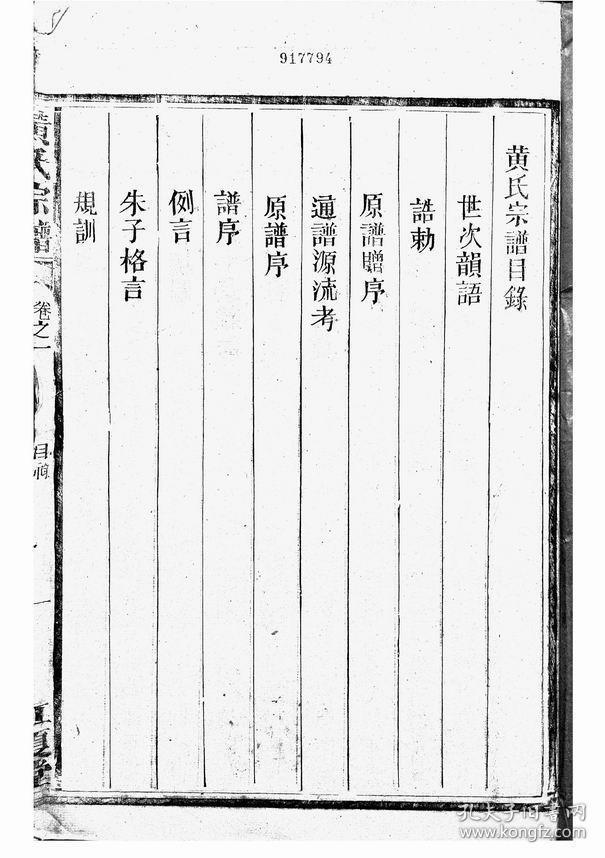 917794
黄氏宗譜目錄
世次韻語
誥勅
原譜贈序
通譜源流考
原譜序
譜序
例言
朱子格言
規訓
黃氏宗譜
卷之一
目錄
一
江夏堂
孔夫子旧书网
www.kongfz.com